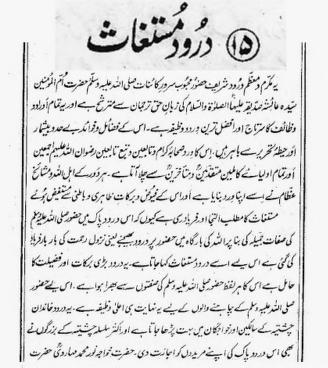 ۱۵ درود مستغاث
یہ مکرم و معظم درود شریف حضور محبوب سرور کائنات صلی اللہ علیہ وسلم حضرت ام المومنین
سیدہ عائشہ صدیقہ علیہا الصلوٰۃ والسلام کی زبان حق ترجمان سے مترشح ہے اور یہ تمام اوراد
وظائف کا سرتاج اور افضل ترین درود وظیفہ ہے۔ اس کے فضائل و فوائد بے حد و بیشمار
اور حیطۂ تحریر سے باہر ہیں، اس کا ورد صحابہ کرام و تابعین و تبع تابعین رضوان اللہ علیہم اجمعین
اور تمام اولیائے کاملین متقدمین و متاخرین سے چلا آتا ہے۔ ہر دور کے اہل اللہ و مشائخ
عظام نے اسے اپنا ورد بنایا ہے اور اس کے فیوض و برکات ظاہری و باطنی سے مستفیض ہوئے
مستغاث کا مطلب التجا اور فریاد رسی ہے کیوں کہ اس درود پاک میں حضور صلی اللہ علیہ وسلم
کی صفات جمیلہ کی بنا پر اللہ کی بارگاہ میں حضور پر درود بھیجنے یعنی نزول رحمت کی بار بار فریاد
کی گئی ہے اس لیے اسے درود مستغاث کہا جاتا ہے۔ یہ درود بڑی برکات اور فضیلت کا
حامل ہے اس کا ہر لفظ حضور صلی اللہ علیہ وسلم کی صفتوں سے بھرا ہوا ہے۔ اس لیے حضور
صلی اللہ علیہ وسلم کے چاہنے والوں کے لیے یہ نہایت ہی اعلیٰ وظیفہ ہے۔ یہ درود خاندان
چشتیہ کے سالکین اور خواجگان میں بہت پڑھا جاتا ہے اور اکثر سلسلہ چشتیہ کے بزرگوں نے
بھی اس درود پاک کی اپنے مریدوں کو اجازت دی۔ حضرت خواجہ نور محمد مہاروی حضرت